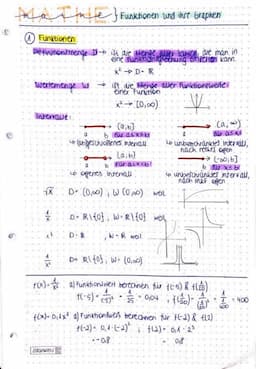 MATHE } Funktionen und ihre Graphen
① Funktionen
Definitionsmenge D → ist die Menge aller Zahlen, die man in
eine Funktionsgleichung einsetzen kann.
x² → D = ℝ
Wertemenge W → ist die Menge aller Funktionswerte
einer Funktion
x² → [0,∞)
Intervalle:
für a≤x≤b
für a≤x
→ abgeschlossenes Intervall
→ unbeschränktes Intervall,
nach rechts offen
(a;b)
(-∞;b)
für a<x<b
für x<b
→ offenes Intervall
→ unbeschränktes Intervall,
nach links offen
√x D = (0,∞) , W (0,∞) weil
1/x D = ℝ\{0} , W = ℝ\{0} weil
x³ D = ℝ , W = ℝ weil
1/x² D = ℝ\{0} , W = (0,∞)
f(x) = 1/x² a) Funktionswert berechnen für f(-5) &
f(-5) = 1/(-5)² = 1/25 = 0,04 = 400
a) Funktionswert berechnen für f(-2) & f(2)